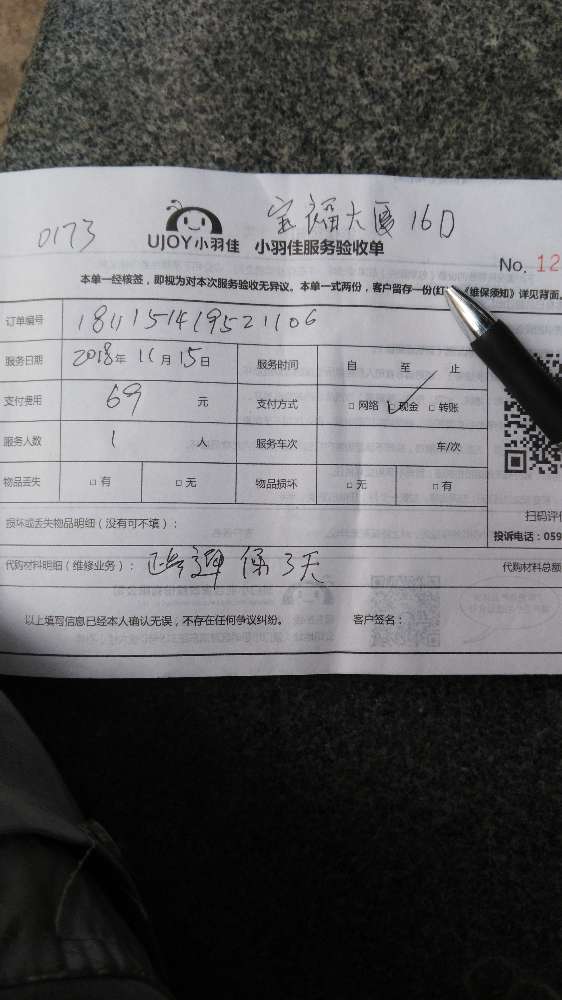 宝福大厦16D
0173
UJOY小羽佳 小羽佳服务验收单
No. 12
本单一经核签，即视为对本次服务验收无异议。本单一式两份，客户留存一份(红 《维保须知》详见背面。
订单编号 181115141952 1106
服务日期 2018年 11月 15日 服务时间 自 至 止
支付费用 69 元 支付方式 □ 网络 □ 现金 □ 转账
服务人数 1 人 服务车次 车/次
物品丢失 □ 有 □ 无 物品损坏 □ 无 □ 有
损坏或丢失物品明细（没有可不填）：
扫码评
投诉电话：059
代购材料明细（维修业务）： 保3天 代购材料总额
以上填写信息已经本人确认无误，不存在任何争议纠纷。 客户签名：